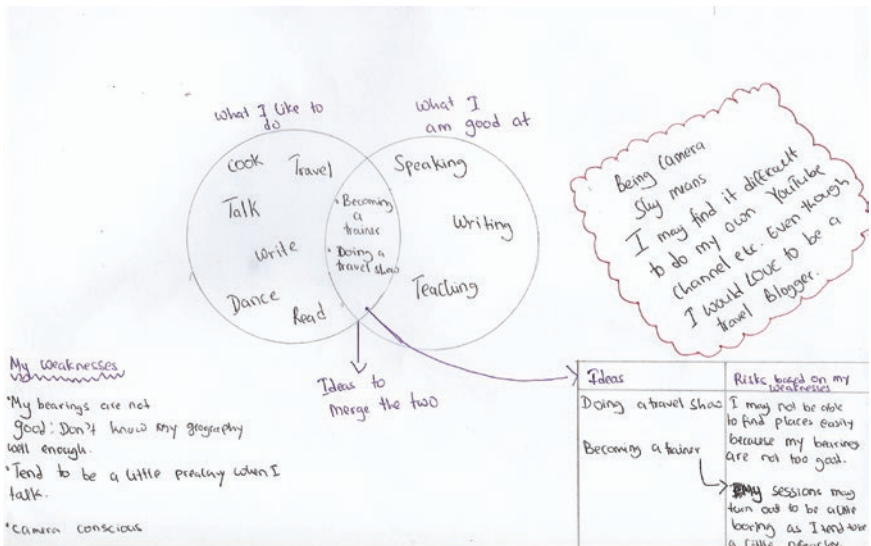 What I like to
do
What I
am good at
Cook
Travel
Talk
Write
Dance
Read
• Becoming
a
trainer
• Doing a
travel show
Speaking
Writing
Teaching
Ideas to
merge the two
Being Camera
Shy means
I may find it difficult
to do my own YouTube
channel etc. Even though
I would LOVE to be a
travel Blogger.
My weaknesses
• My bearings are not
good: Don't know my geography
well enough.
• Tend to be a little preachy when I
talk.
• camera conscious
Ideas
Risks based on my
weaknesses
Doing a travel show
I may not be able
to find places easily
because my bearings
are not too good.
Becoming a trainer
My sessions may
turn out to be a little
boring as I tend to be
a little preachy